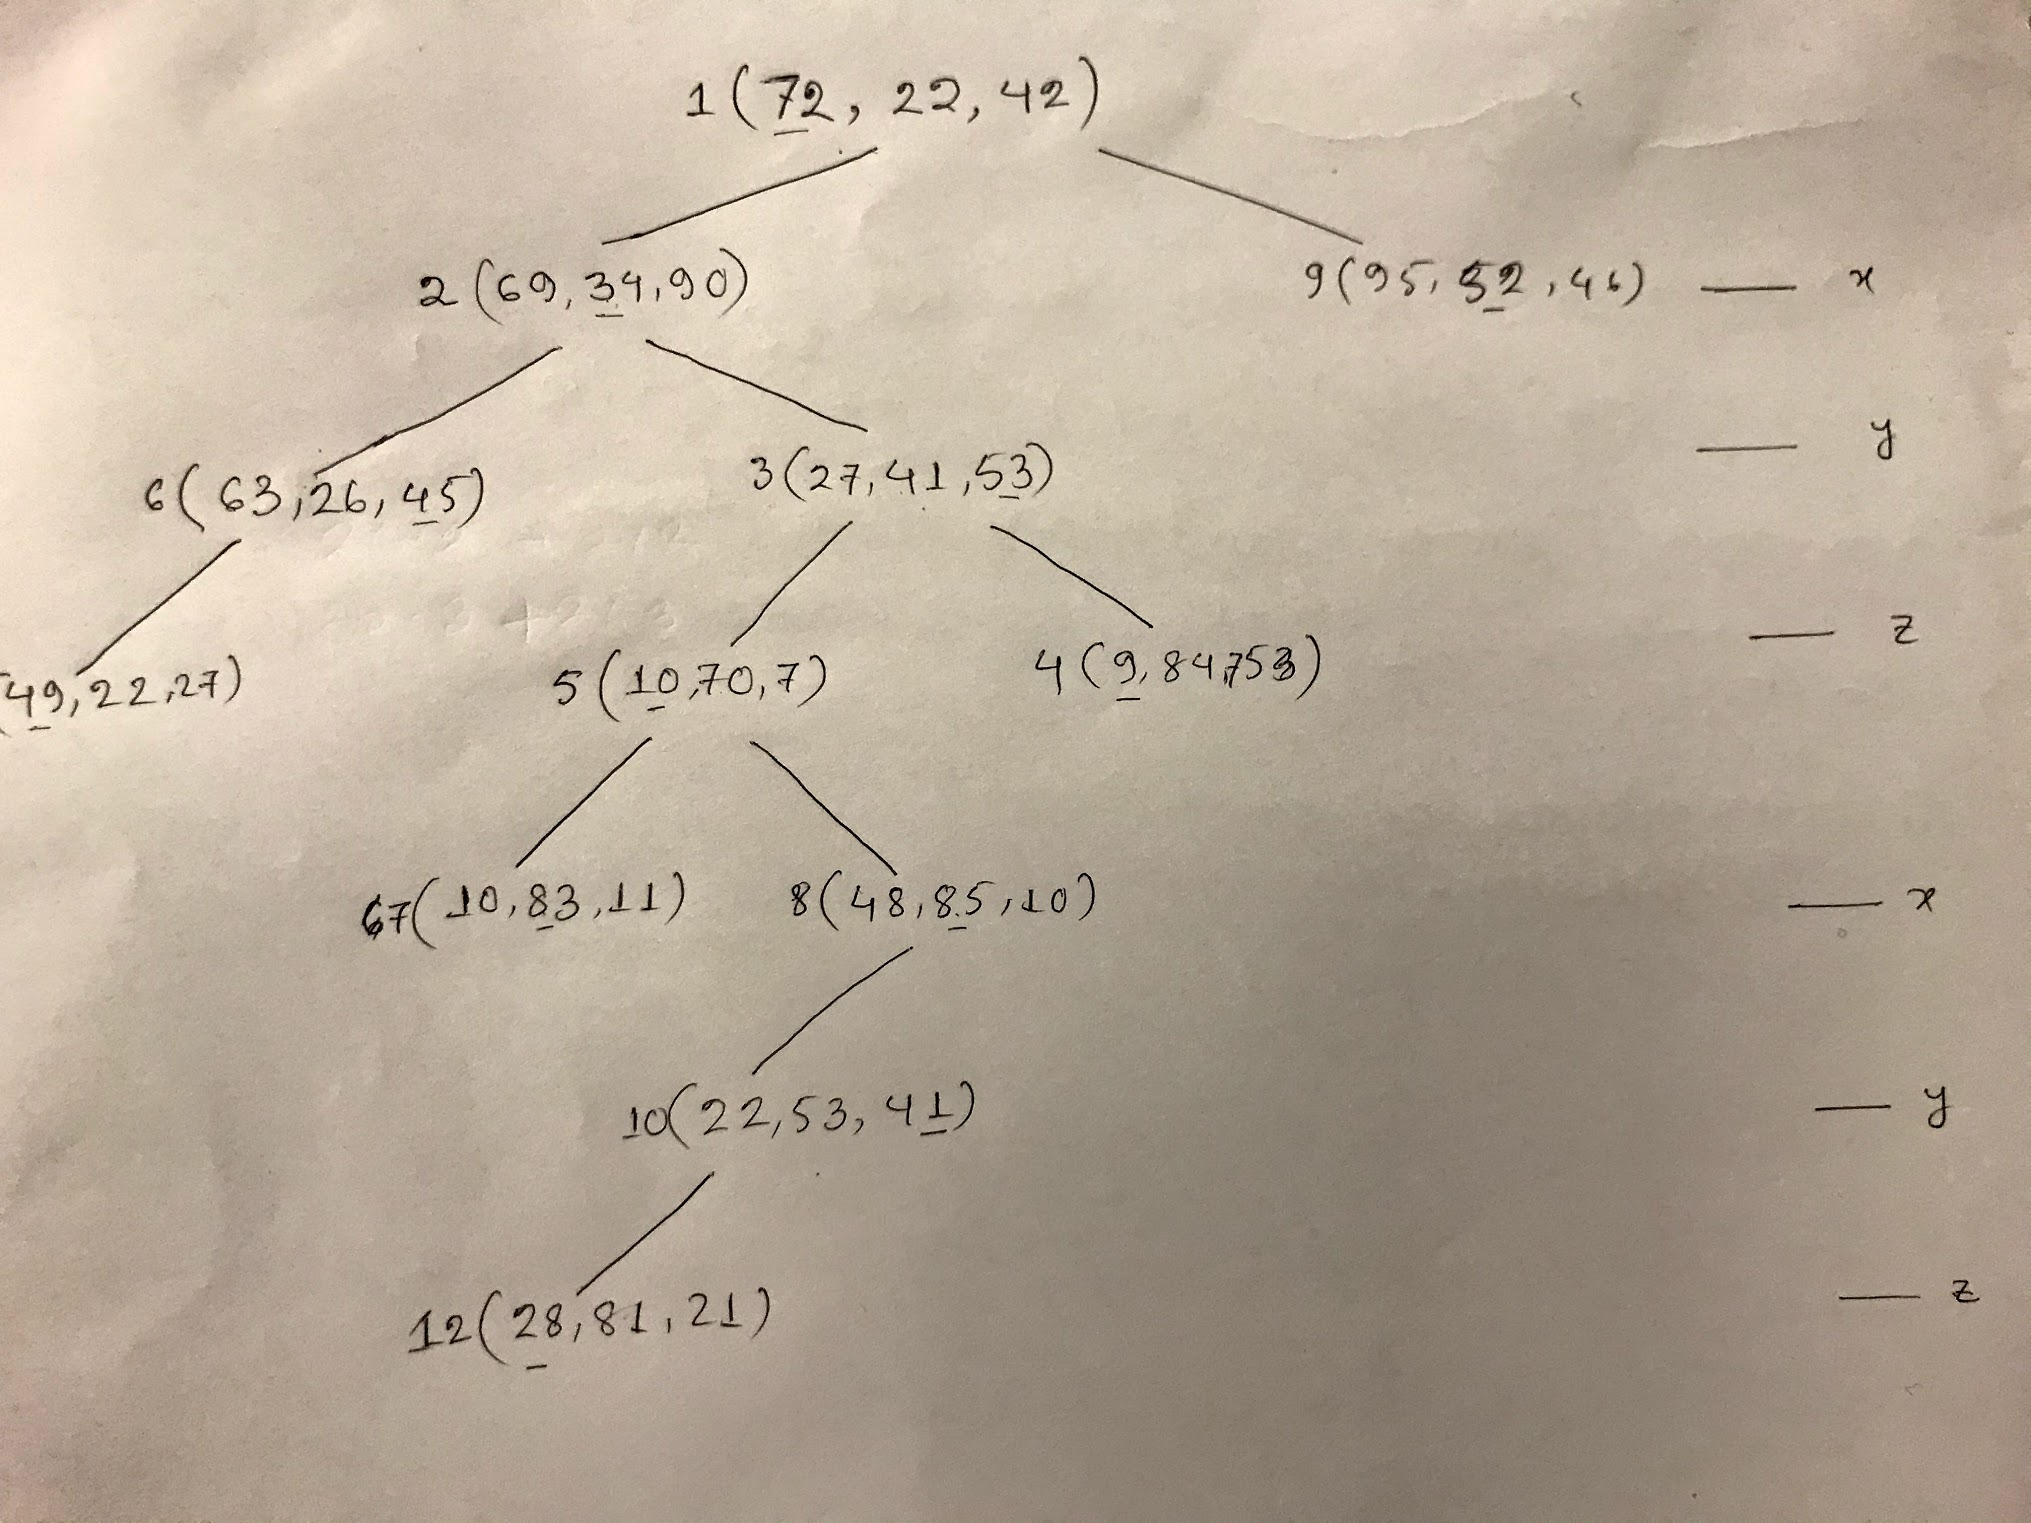 1 (72, 22, 42)
2 (69, 34, 90)
9 (95, 52, 46) — x
— y
6 (63, 26, 45)
3 (27, 41, 53)
— z
(49, 22, 27)
5 (10, 70, 7)
4 (9, 84, 753)
7 (10, 83, 11)
8 (48, 85, 10)
— x
10 (22, 53, 41)
— y
12 (28, 81, 21)
— z